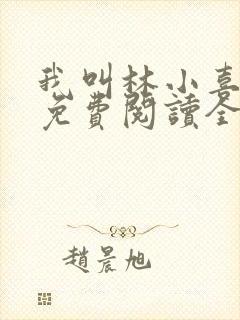 我叫林小喜
免費閱讀全
趙晨旭